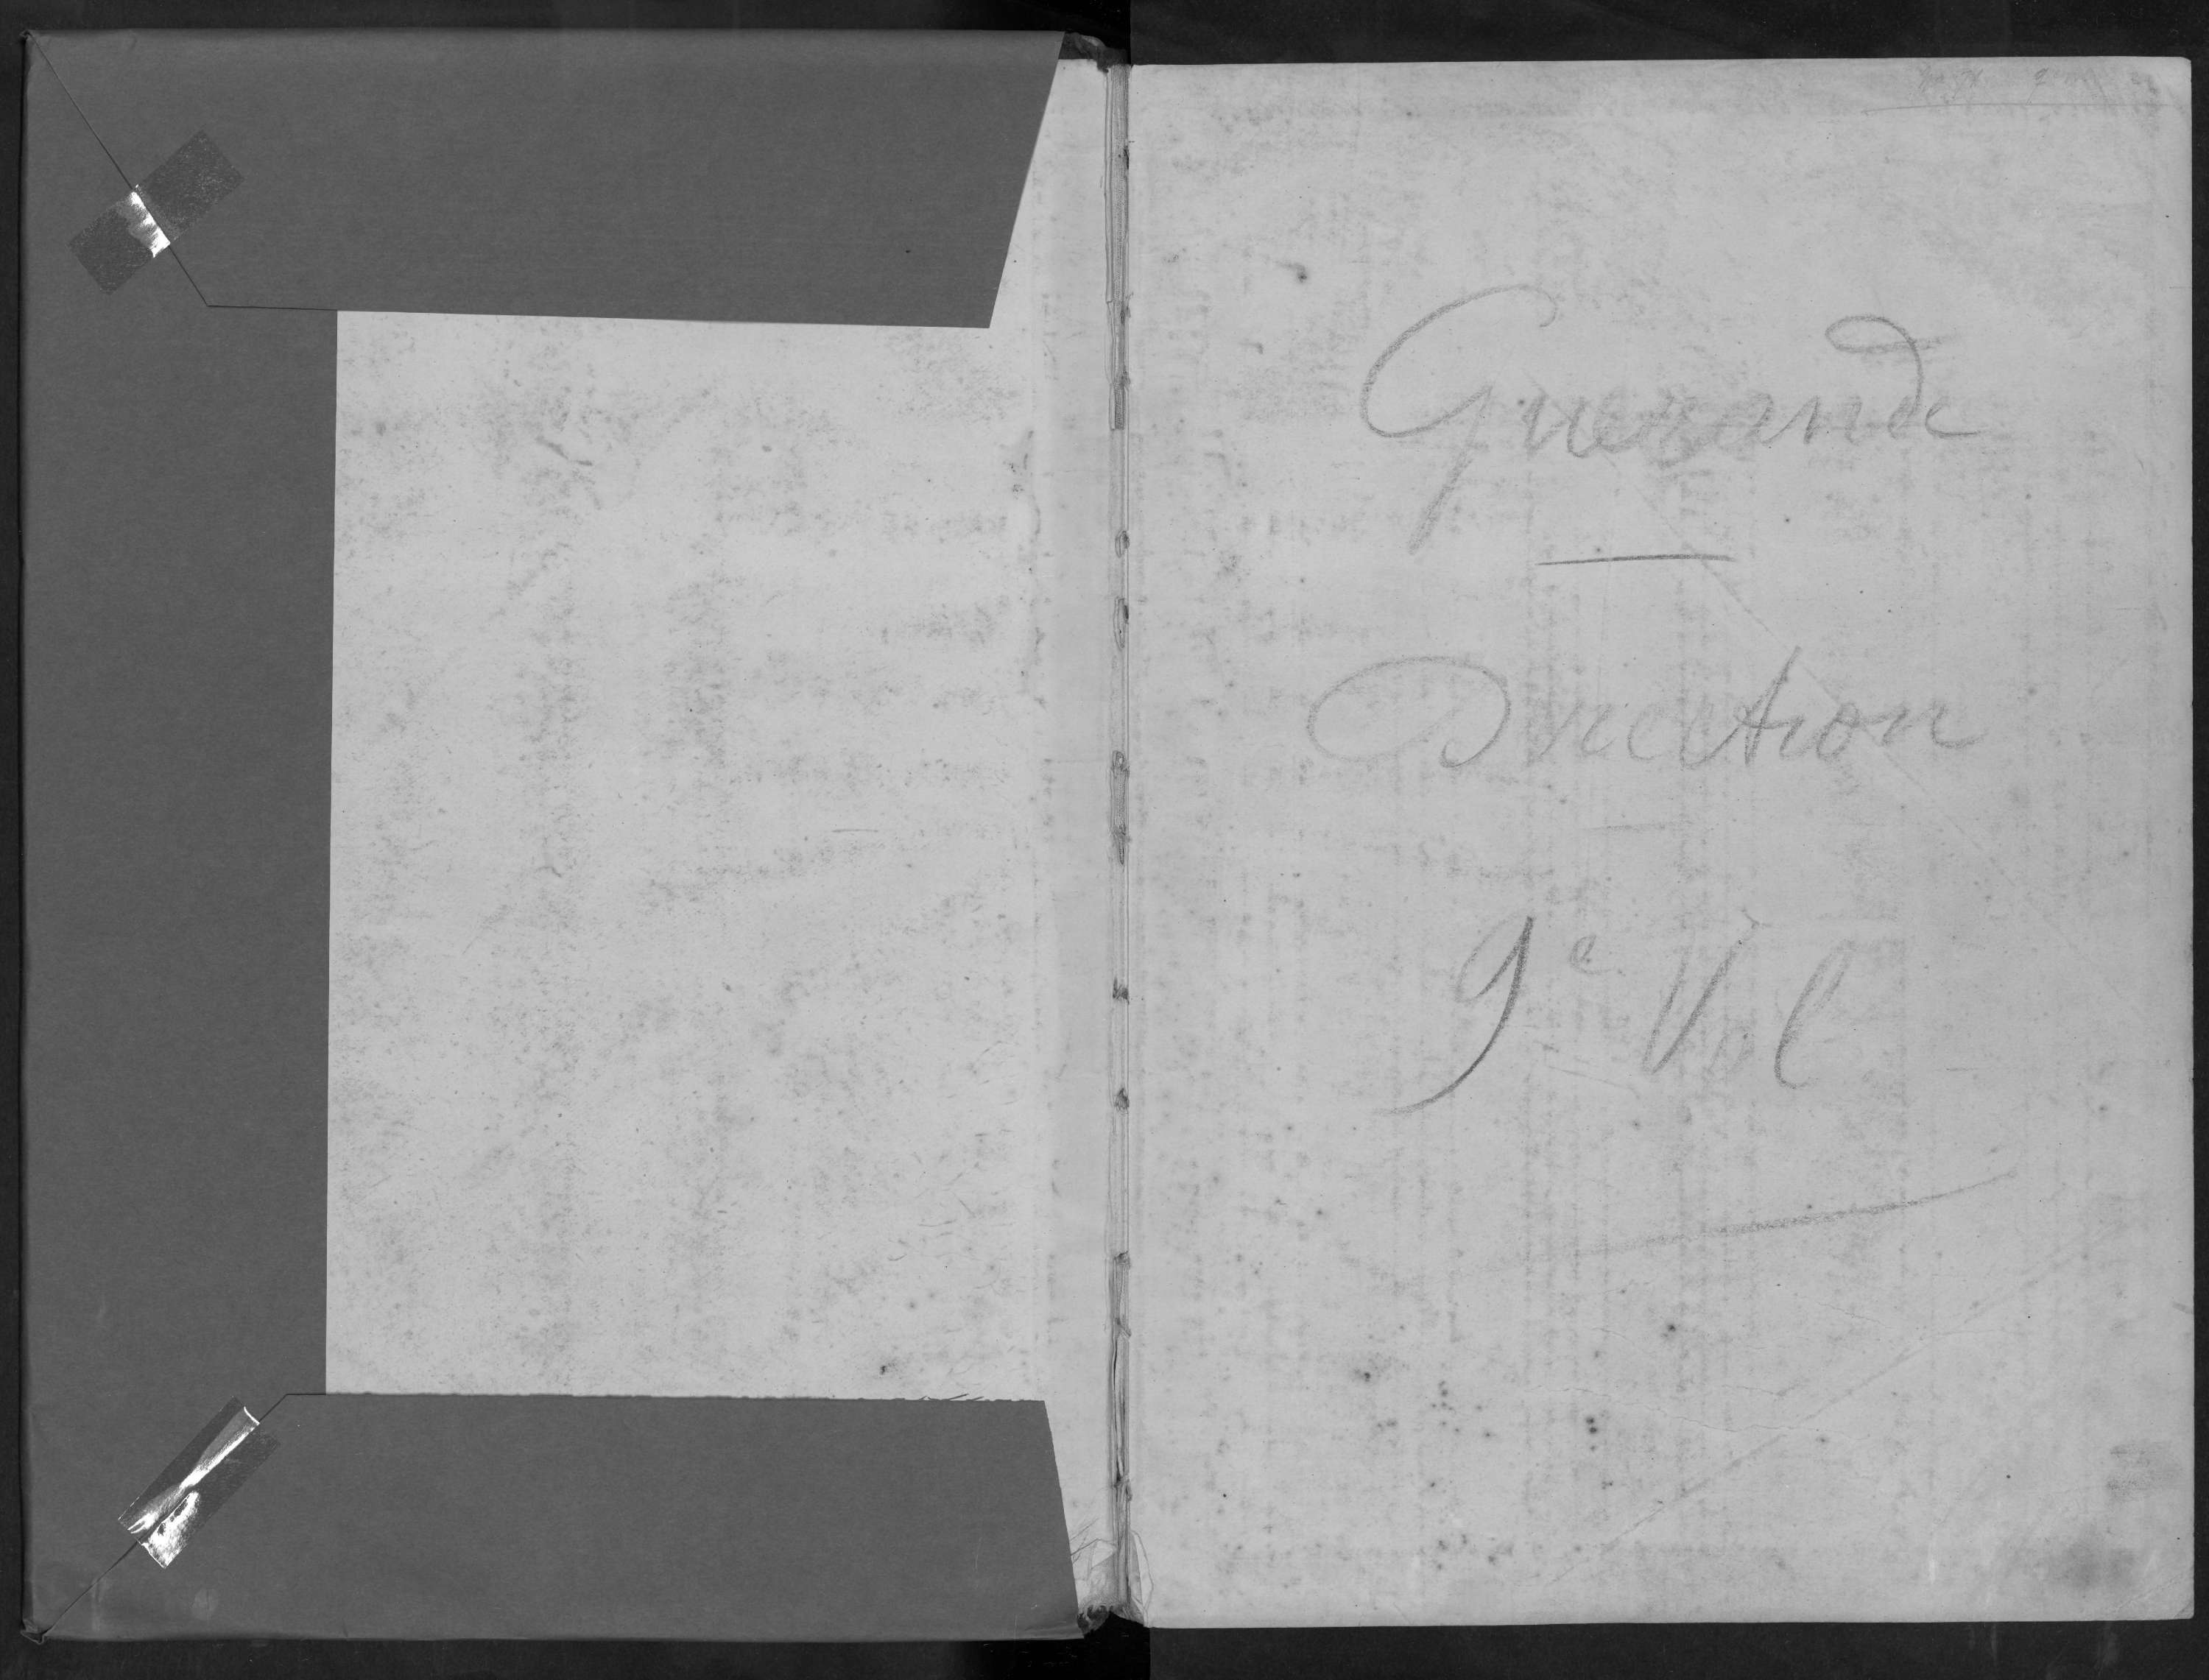 Guerande
Direction
9e Vol